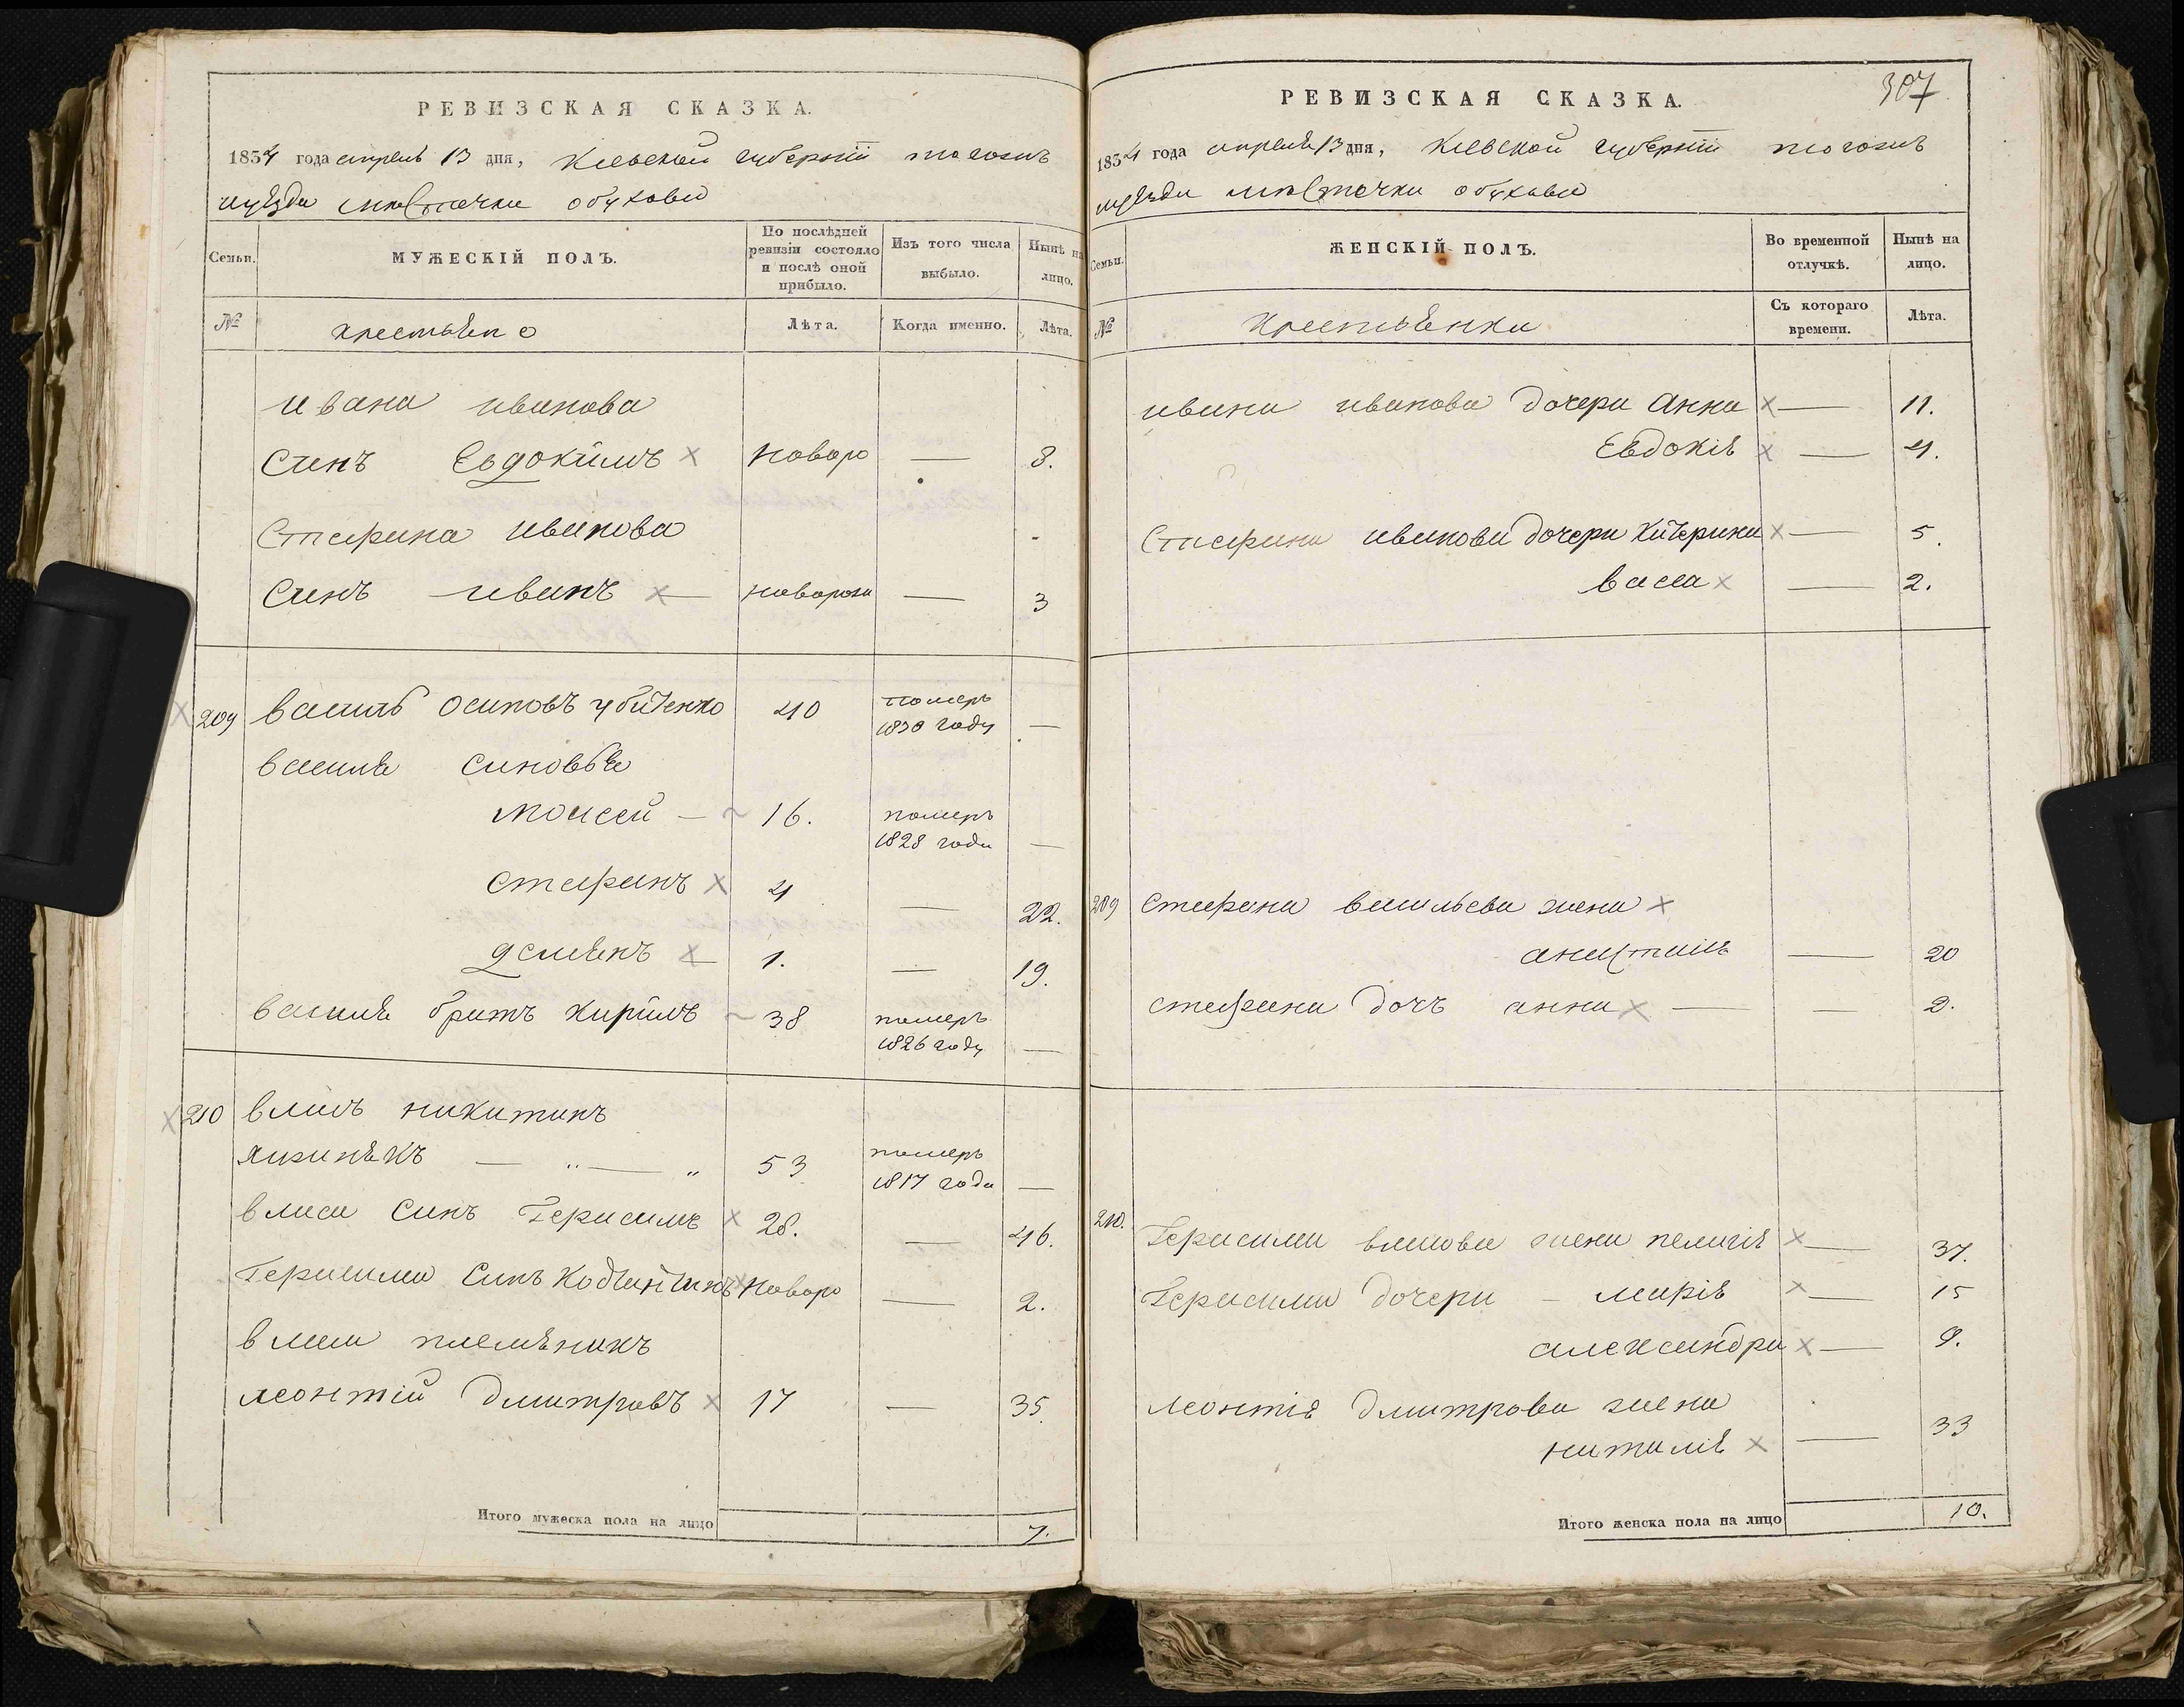 РЕВИЗСКАЯ СКАЗКА.
1834 года апреля 13 дня, Киевской губернїи того жъ
уѣзда мѣсточка обухова
Семьи.
МУЖЕСКІЙ ПОЛЪ.
По послѣдней ревизіи состояло и послѣ оной прибыло.
Изъ того числа выбыло.
Нынѣ на лицо.
№
крестьѣне
Лѣта.
Когда именно.
Лѣта.
ивана иванова
синъ Евдокимъ новоро — 8.
Стефана иванова
Синъ иванъ — новорож — 3
209 василь осиповъ 40 померъ 1830 году —
василѣ синовьѣ
моисей — 16. померъ 1828 года —
стефанъ 4 — 22.
демѣнъ 1. — 19.
василѣ братъ кирилъ 38 померъ 1826 году —
210 власъ никитинъ
— „ — „ 53 померъ 1817 года —
власа синъ Герасимъ 28. — 46.
Герасима Синъ новоро — 2.
власа племѣникъ
леонтій дмитровъ 17 — 35.
Итого мужеска пола на лицо 7.
РЕВИЗСКАЯ СКАЗКА.
307
1834 года апреля 13 дня, Киевской губернїи того жъ
уѣзда мѣсточка обухова
Семьи.
ЖЕНСКІЙ ПОЛЪ.
Во временной отлучкѣ.
Нынѣ на лицо.
№
крестьѣнки
Съ котораго времени.
Лѣта.
ивана иванова дочери Анна — 11.
Евдокіѣ — 4.
Стефана иванова дочери Катерина — 5.
васса — 2.
209 стефана васильева жена
анастасіѣ — 20
стефана дочъ анна — — 2.
210. Герасима власова жена пелагіѣ — 37.
Герасима дочери — маріѣ — 15
александра — 9.
леонтіѣ дмитрова жена
наталіѣ — 33
Итого женска пола на лицо 10.